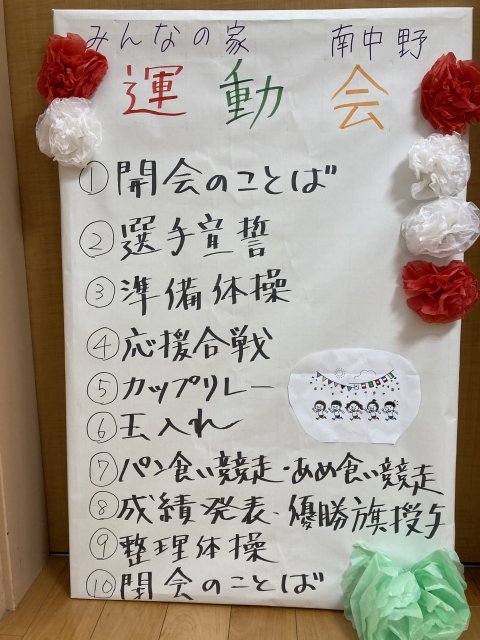 みんなの家 南中野
運動会
①開会のことば
②選手宣誓
③準備体操
④応援合戦
⑤カップリレー
⑥玉入れ
⑦パン食い競走・あめ食い競走
⑧成績発表・優勝旗授与
⑨整理体操
⑩閉会のことば